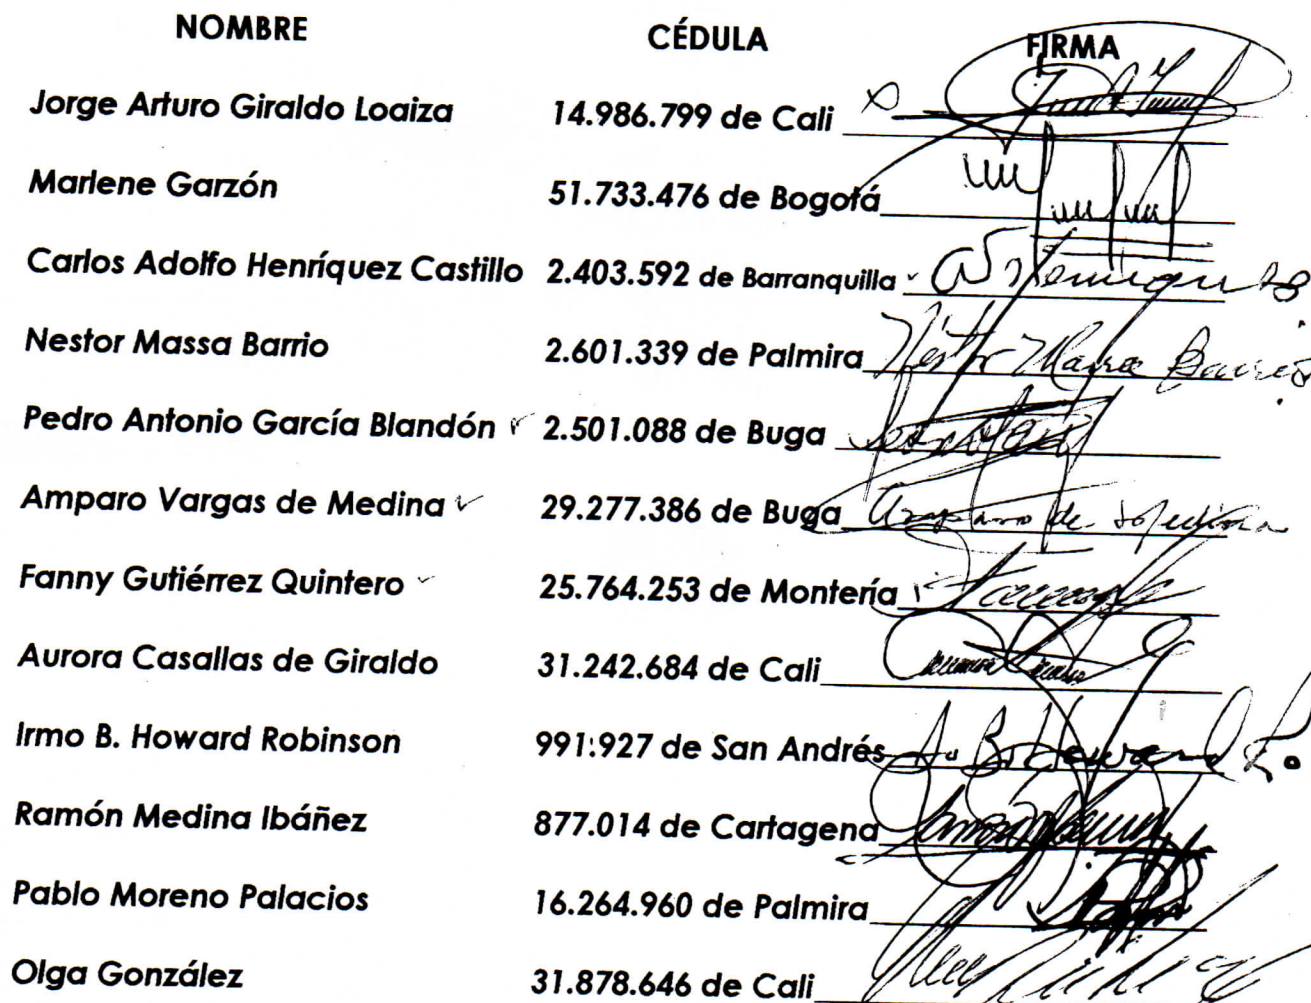 NOMBRE CÉDULA FIRMA
Jorge Arturo Giraldo Loaiza 14.986.799 de Cali
Marlene Garzón 51.733.476 de Bogotá
Carlos Adolfo Henríquez Castillo 2.403.592 de Barranquilla
Nestor Massa Barrio 2.601.339 de Palmira Néstor Massa Barrio
Pedro Antonio García Blandón 2.501.088 de Buga
Amparo Vargas de Medina 29.277.386 de Buga Amparo de Medina
Fanny Gutiérrez Quintero 25.764.253 de Montería
Aurora Casallas de Giraldo 31.242.684 de Cali
Irmo B. Howard Robinson 991.927 de San Andrés B. Howard R.
Ramón Medina Ibáñez 877.014 de Cartagena
Pablo Moreno Palacios 16.264.960 de Palmira
Olga González 31.878.646 de Cali